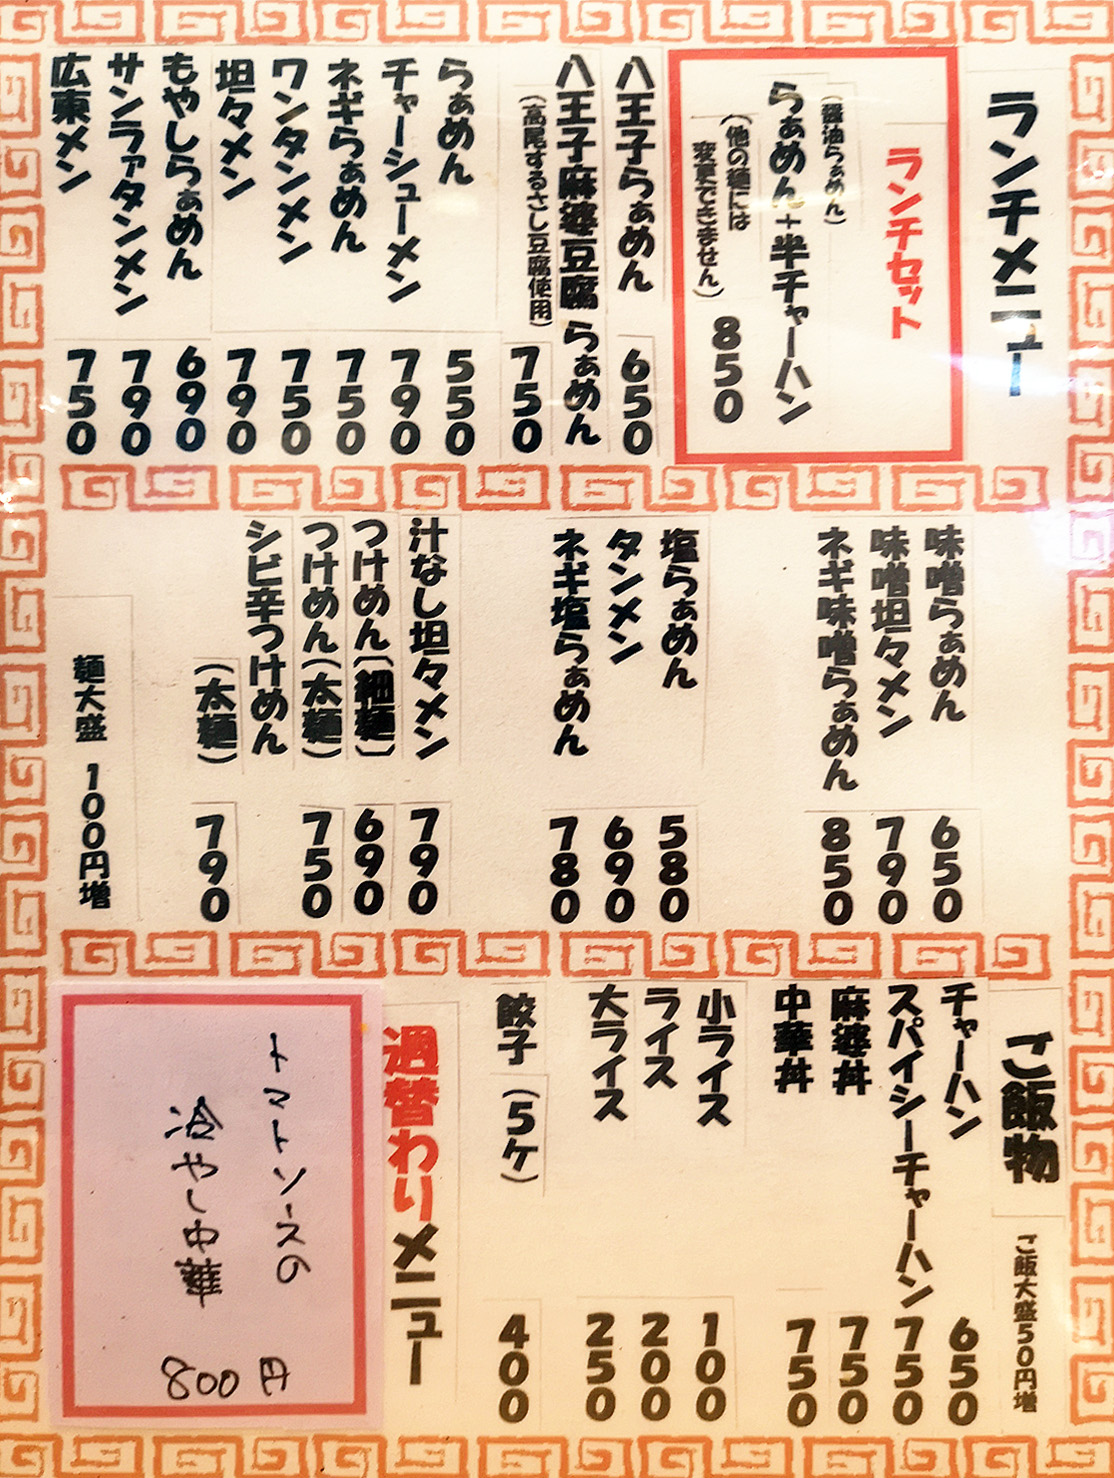 ランチメニュー
ランチセット
(醤油らぁめん)
らぁめん+半チャーハン
(他の麺には
変更できません)
850
八王子らぁめん 650
八王子麻婆豆腐らぁめん
(高尾するさし豆腐使用) 750
らぁめん 550
チャーシューメン 790
ネギらぁめん 750
ワンタンメン 750
坦々メン 790
もやしらぁめん 690
サンラァタンメン 790
広東メン 750
味噌らぁめん 650
味噌坦々メン 790
ネギ味噌らぁめん 850
塩らぁめん 580
タンメン 690
ネギ塩らぁめん 780
汁なし坦々メン 790
つけめん(細麺) 690
つけめん(太麺) 750
シビ辛つけめん
(太麺) 790
麺大盛 100円増
ご飯物
ご飯大盛50円増
チャーハン 650
スパイシーチャーハン 750
麻婆丼 750
中華丼 750
小ライス 100
ライス 200
大ライス 250
餃子(5ケ) 400
週替わりメニュー
トマトソースの
冷やし中華
800円